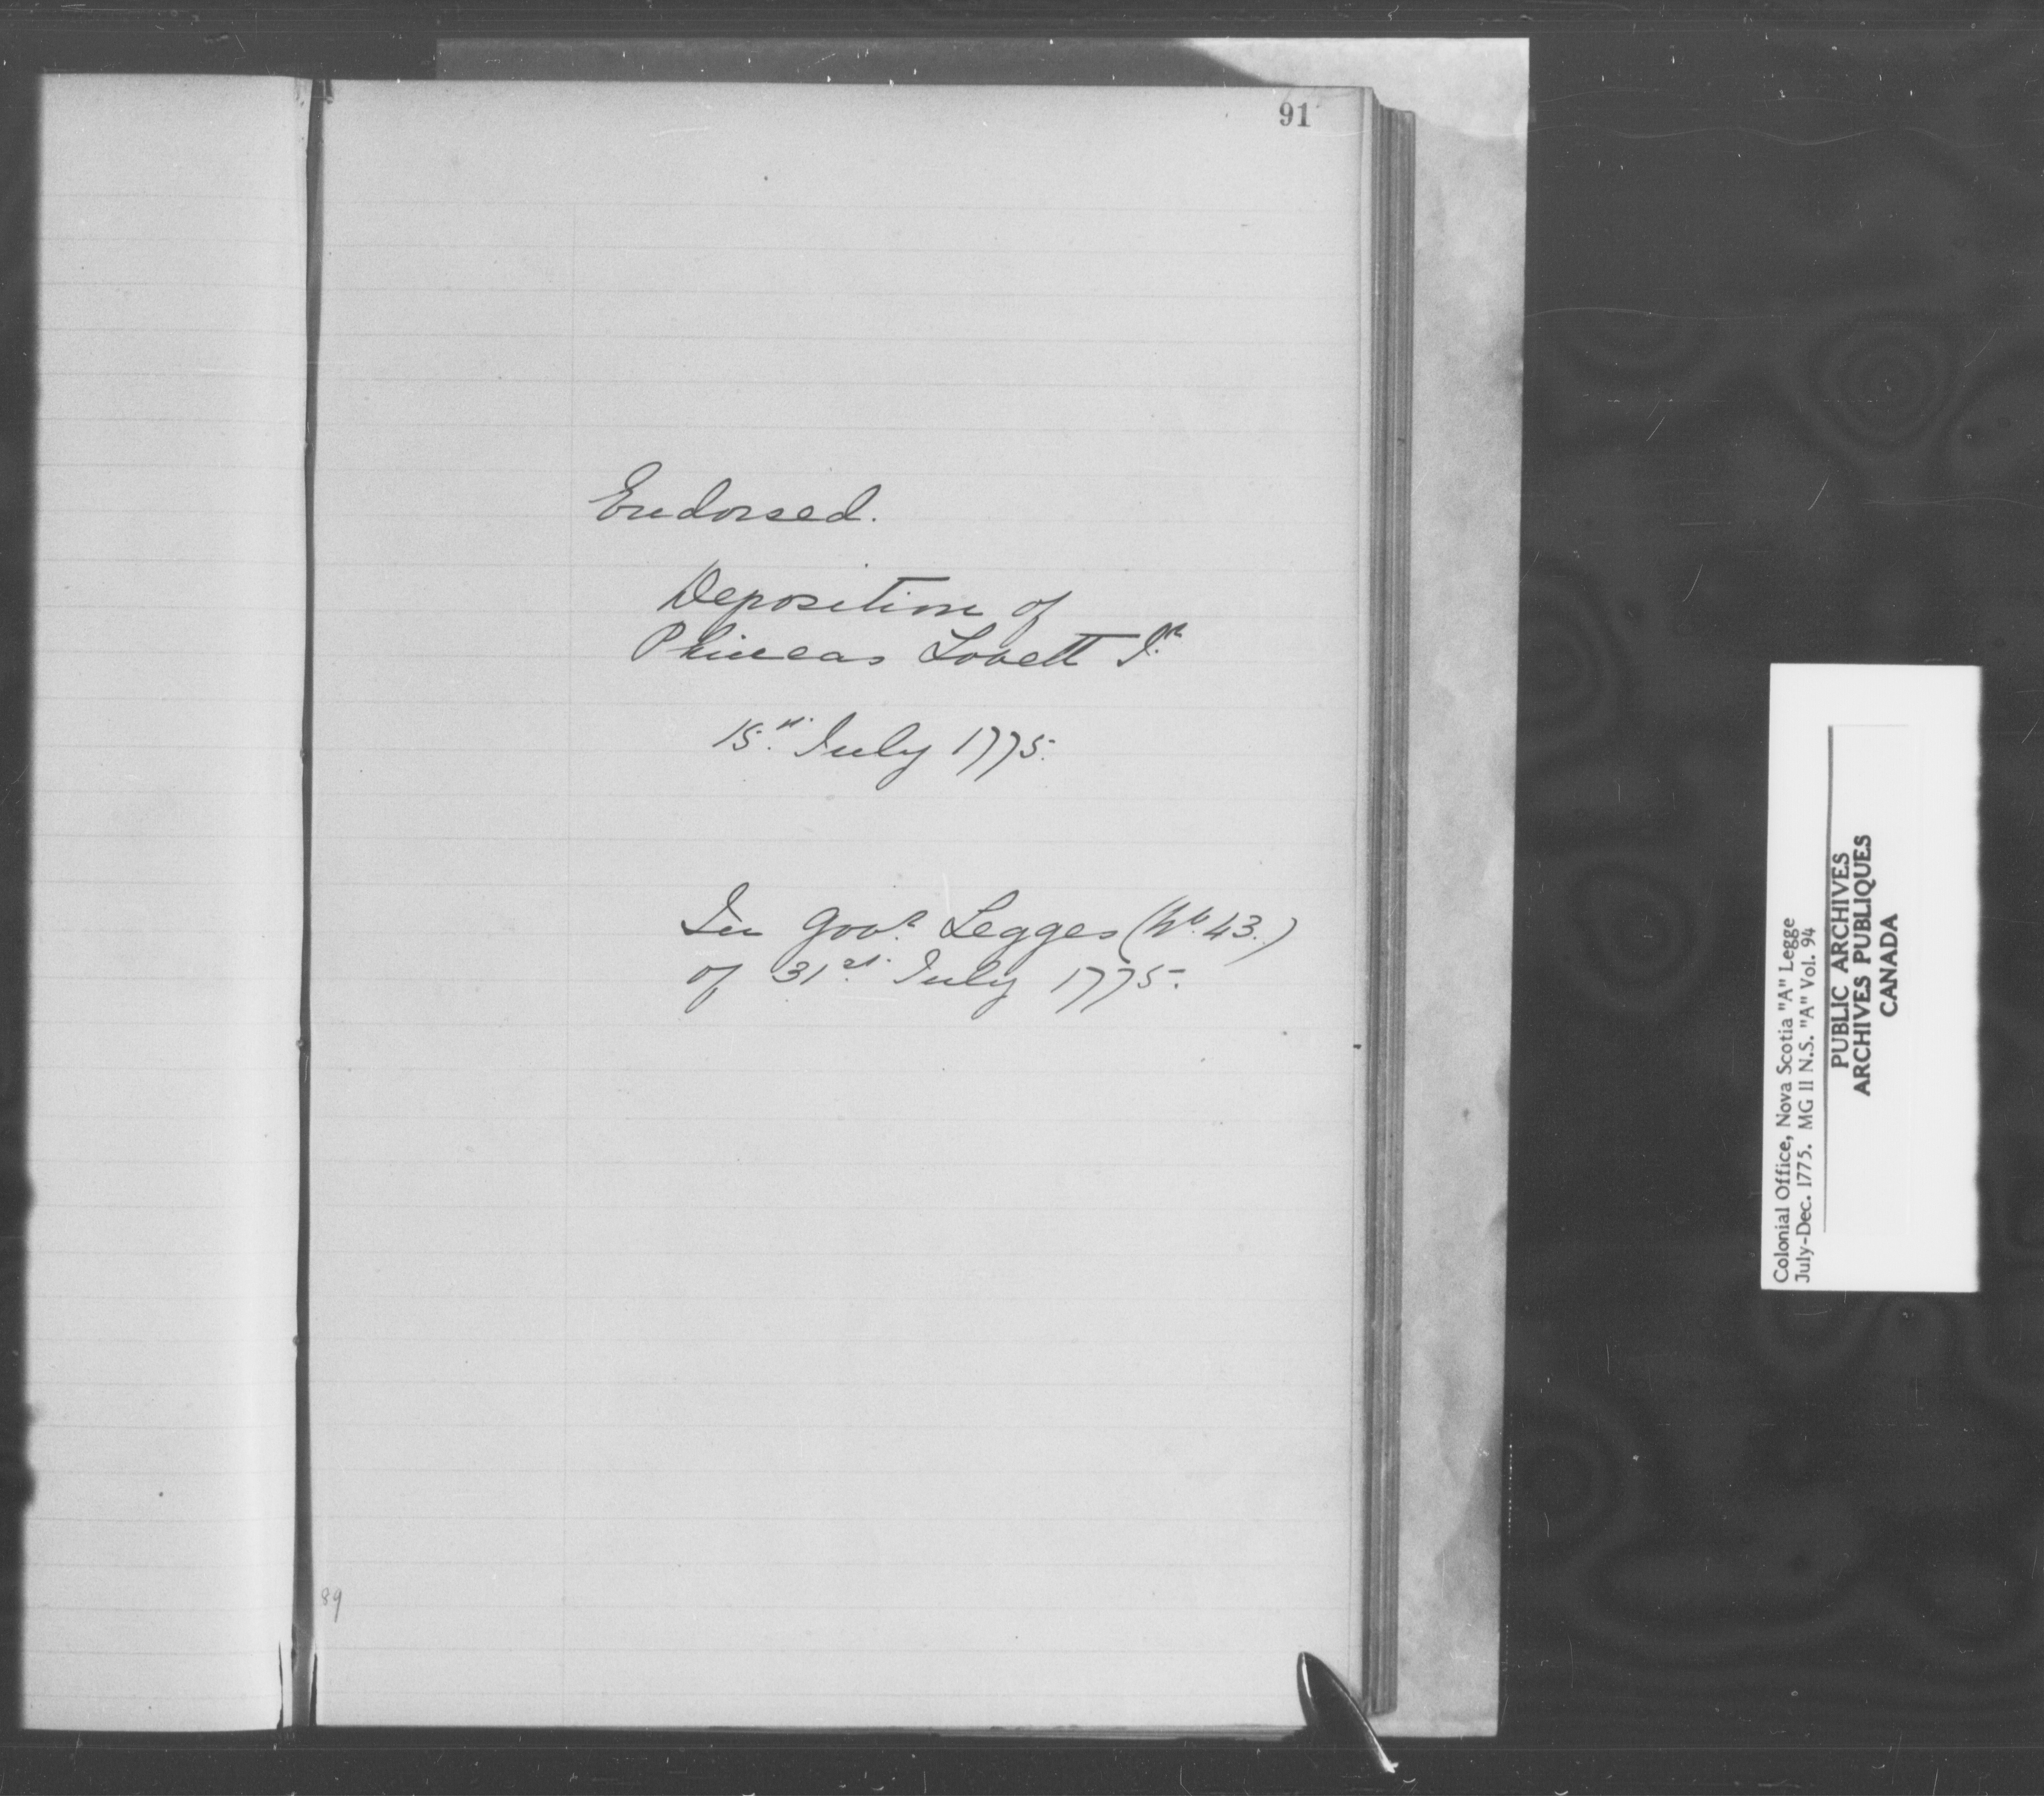 91
Endorsed.
Deposition of
Phineas Lovett Jr.
15th July 1775.
In Govr. Legges (No. 43.)
of 31st. July 1775.
89
Colonial Office, Nova Scotia "A" Legge
July-Dec. 1775. MG 11 N.S. "A" Vol. 94
PUBLIC ARCHIVES
ARCHIVES PUBLIQUES
CANADA